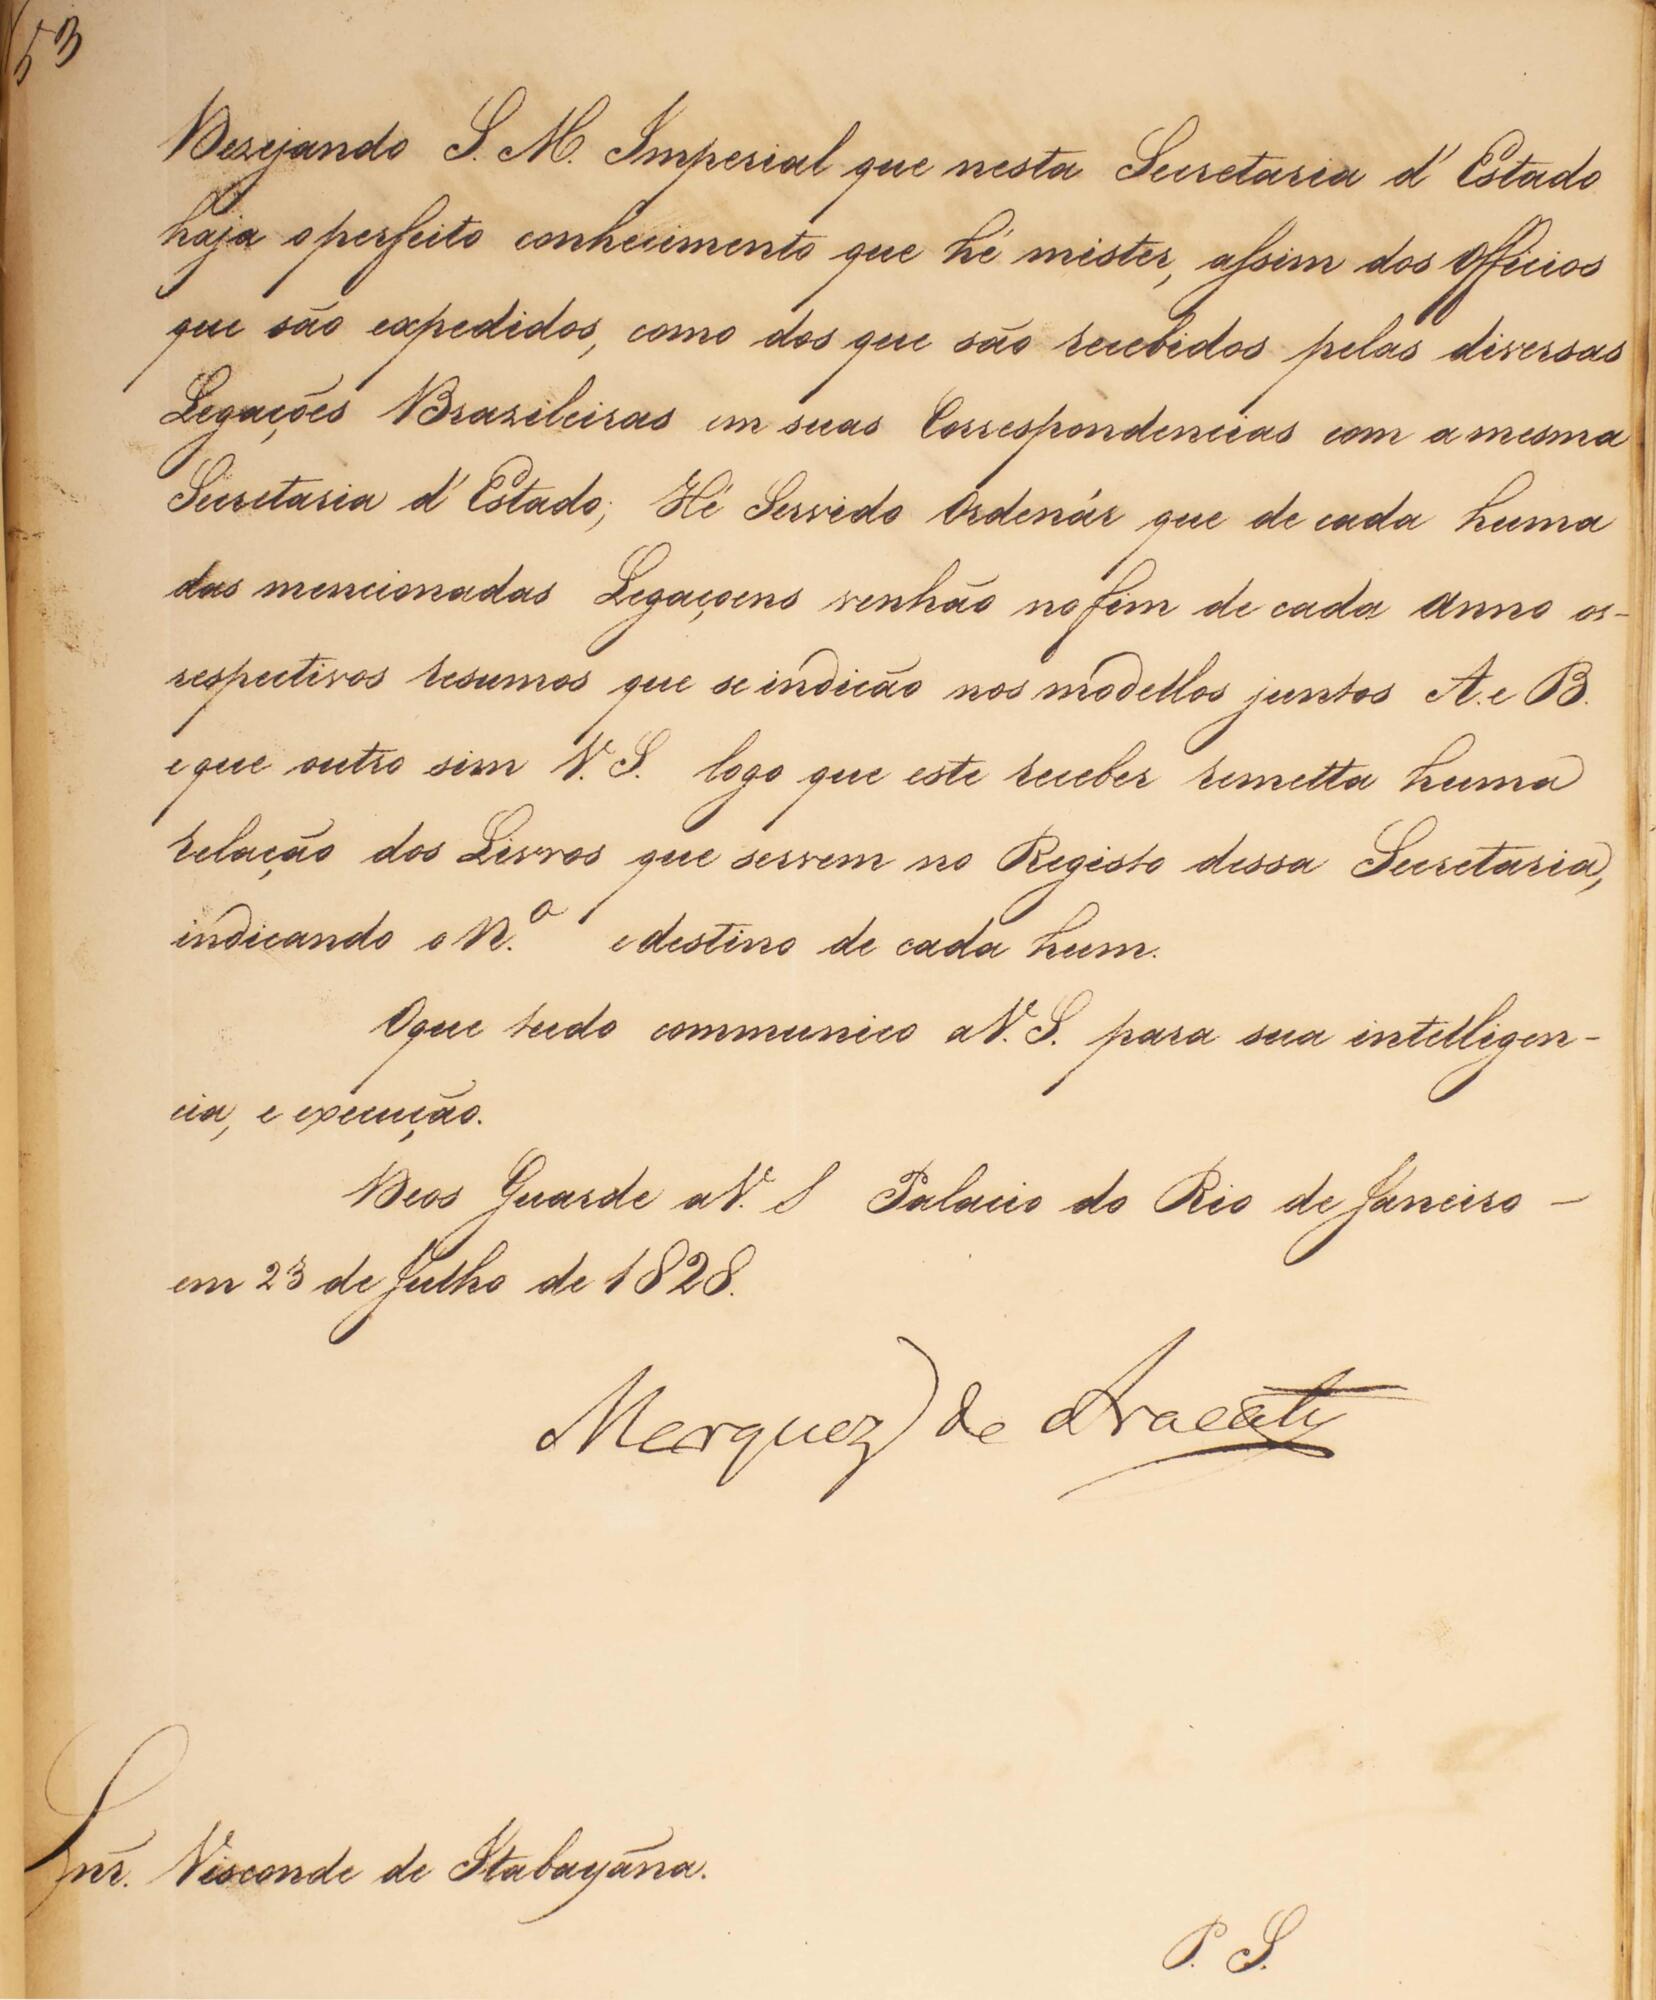 53
Dezejando S. M. Imperial que nesta Secretaria d'Estado
haja o perfeito conhecimento que hé mister, assim dos Officios
que são expedidos, como dos que são recebidos pelas diversas
Legações Brazileiras em suas Correspondencias com a mesma
Secretaria d'Estado; Hé Servido Ordenár que de cada huma
das mencionadas Legaçoens venhão no fim de cada anno os-
respectivos resumos que se indicão nos modellos juntos A. e B.
e que outro sim V. S. logo que este receber remetta huma
relação dos Livros que servem no Registo dessa Secretaria,
indicando o N.º e destino de cada hum.
O que tudo communico a V. S. para sua intelligen-
cia, e execução.
Deos Guarde a V. S Palacio do Rio de Janeiro -
em 23 de Julho de 1828.
Marquez de Aracaty
Snr. Visconde de Itabayána.
P. S.